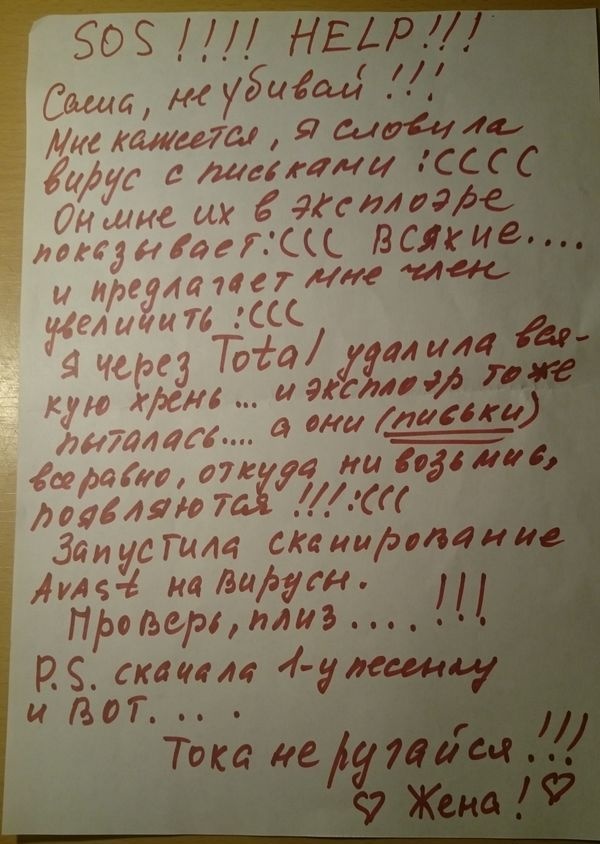 SOS !!!! HELP!!!
Саша, не убивай !!!
Мне кажется, я словила
вирус с письками :СССС
Он мне их в эксплоэре
показывает:ССС ВСЯКИЕ....
и предлагает мне член
увеличить :ССС
Я через Total удалила вся-
кую хрень... и эксплоэр тоже
пыталась.... а они (письки)
всеравно, откуда ни возьмись,
появляются !!!:ССС
Запустила сканирование
Avast на вирусы.
Проверь, плиз .... !!!
P.S. скачала 1-у песенку
и ВОТ. . . .
Тока не ругайся !!!
♡ Жена! ♡